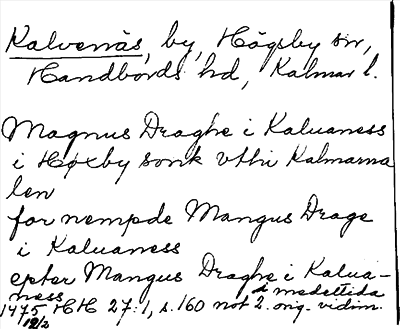 Kalvenäs, by, Högsby sn,
Handbörds hd, Kalmar l.
Magnus Draghe i Kaluaness
i Høxby sonk vthi Kalmarna
len
for nempde Mangus Drage
i Kaluaness
epter Mangus Draghe i Kalua-
ness
1475 19/2 HH 27:1, s. 160 not 2. orig. vidim.
å medeltida